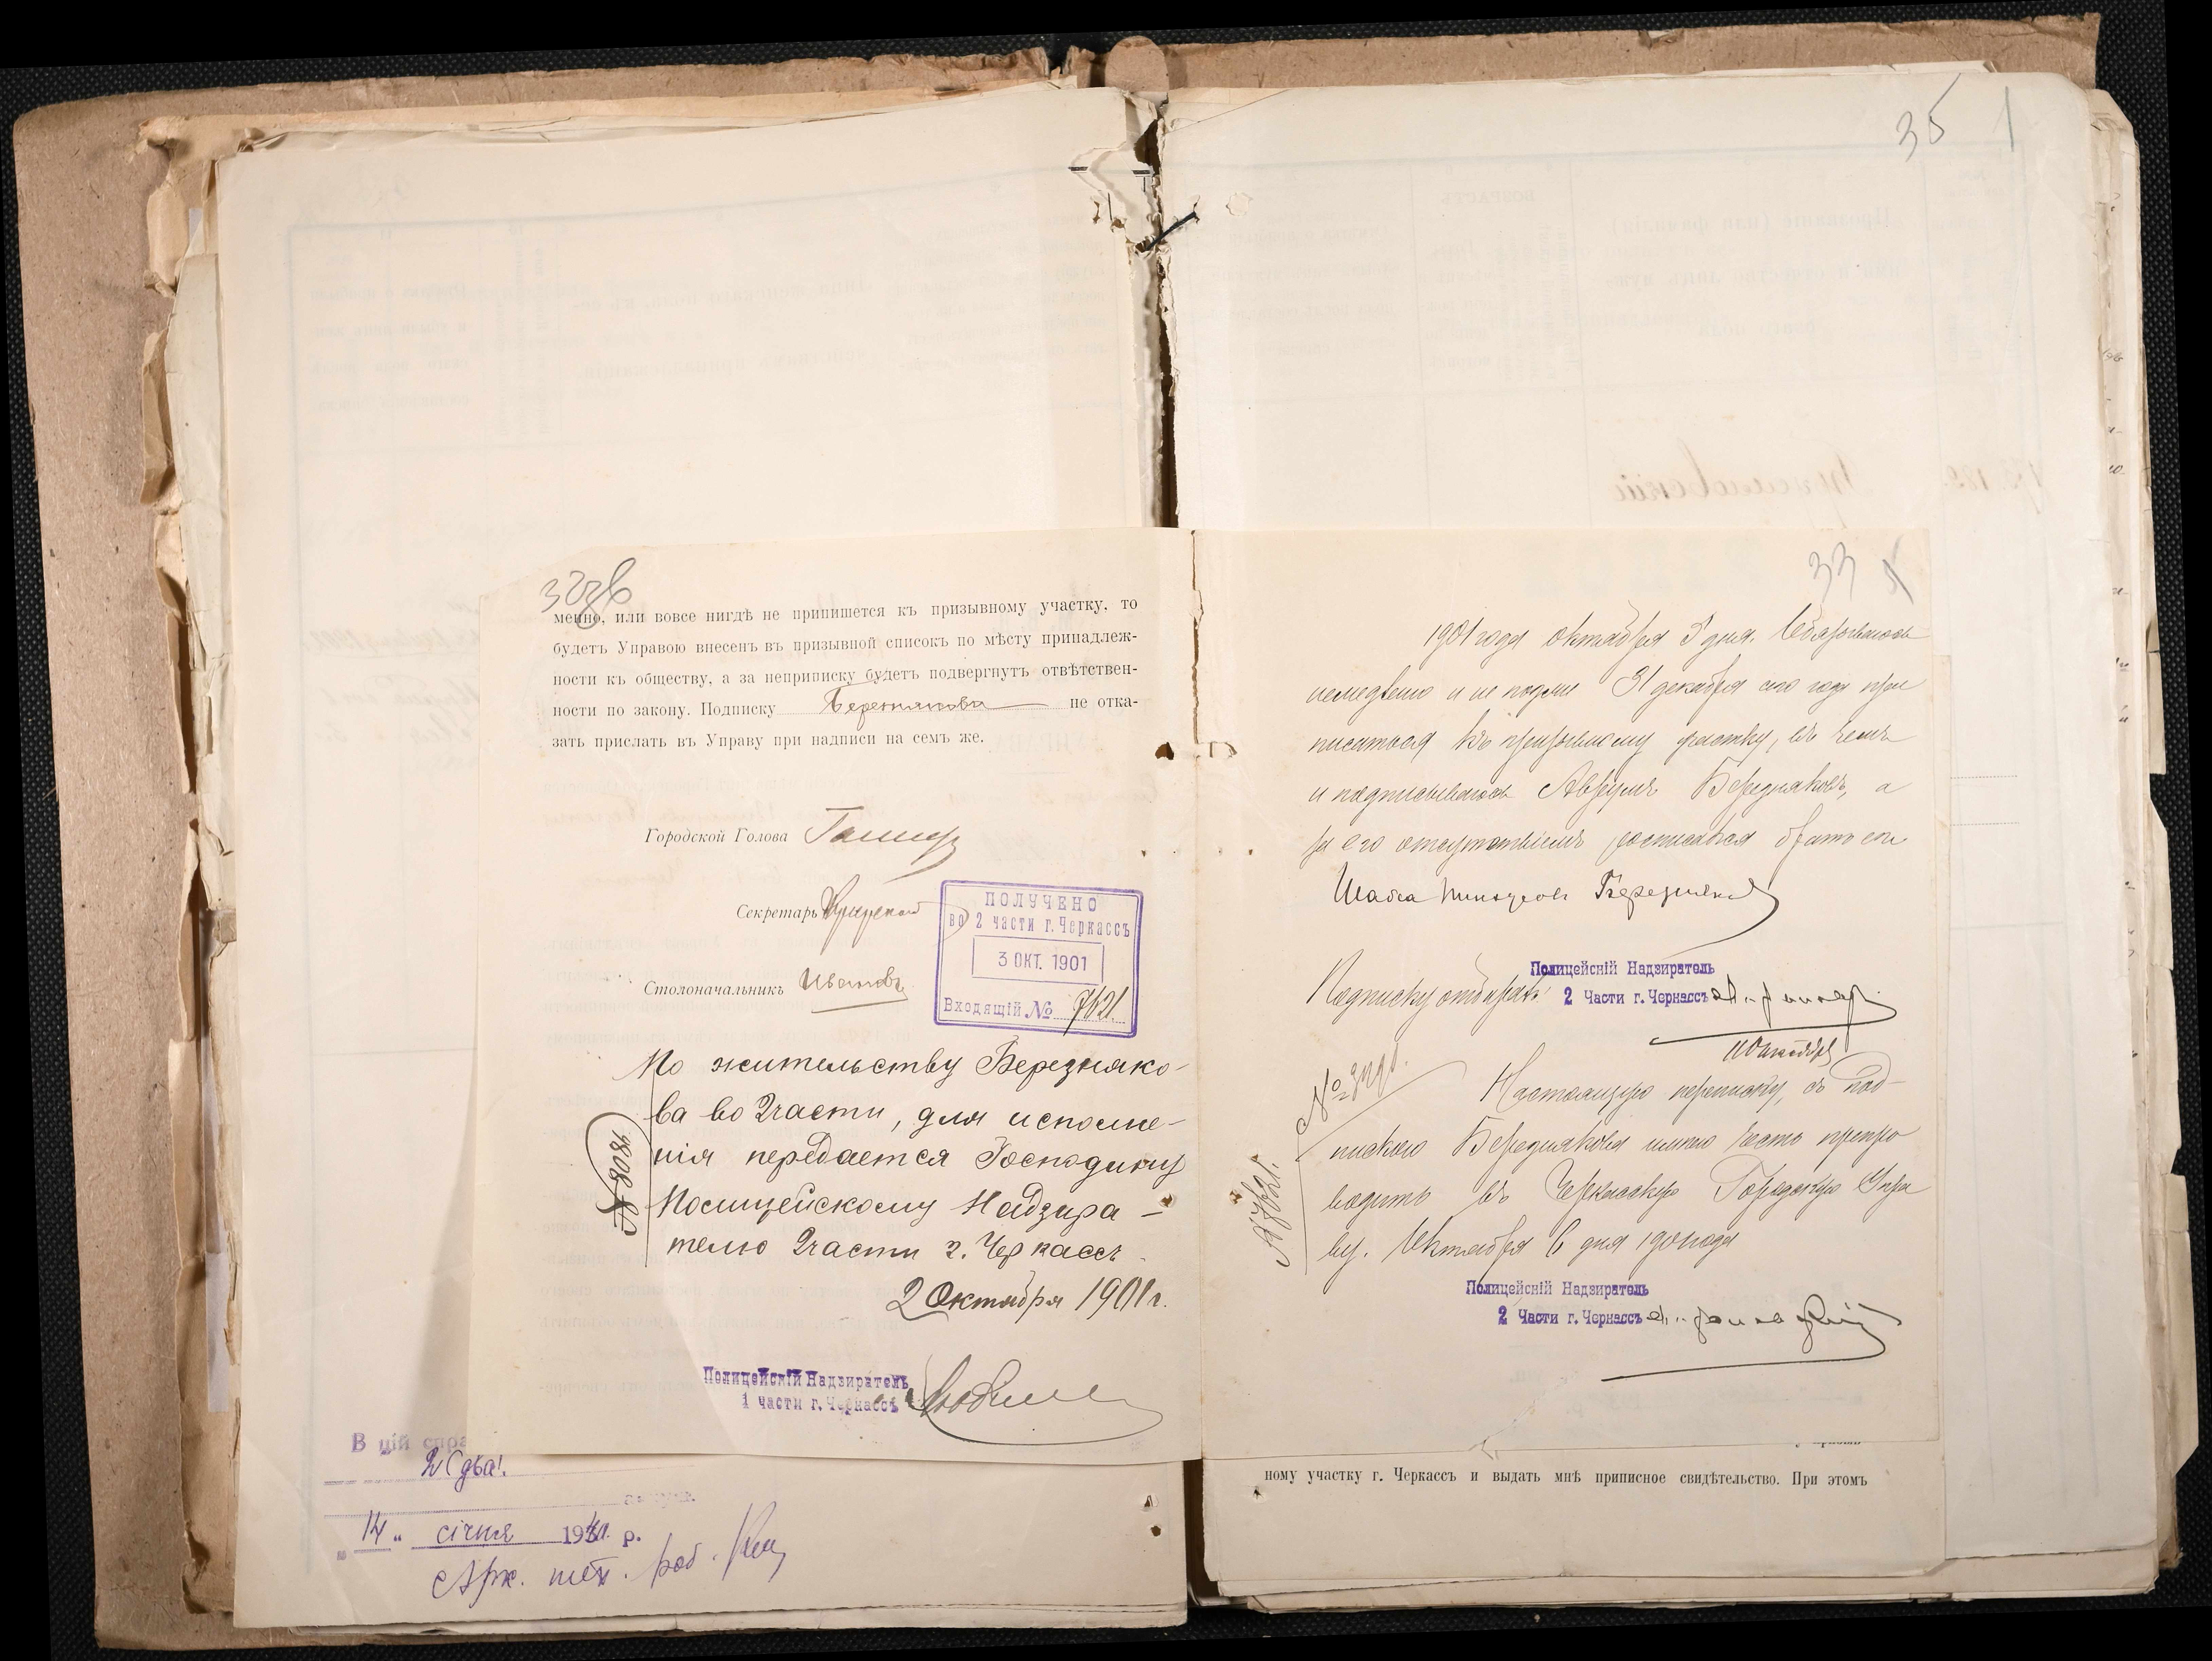 32об
менно, или вовсе нигдѣ не припишется къ призывному участку, то
будетъ Управою внесенъ въ призывной списокъ по мѣсту принадлеж-
ности къ обществу, а за неприписку будетъ подвергнутъ отвѣтствен-
ности по закону. Подписку Березнякова не отка-
зать прислать въ Управу при надписи на семъ же.
Городской Голова
Секретарь
Столоначальникъ Ивановъ
ПОЛУЧЕНО
во 2 части г. Черкассъ
3 ОКТ. 1901
Входящій № 7621.
По жительству Березняко-
ва во 2 части, для исполне-
нія передается Господину
Полицейскому Надзира-
телю 2 части г. Черкассъ
2 Октября 1901 г.
№ 8081
Полицейскій Надзиратель
1 части г. Черкассъ
В цій спра
2 (два).
аркуш.
„14“ січня 19 р.
Арх. тех. роб.
35
33
1901 года Октября 5 дня. Обязываюсь
немедленно и не позже 31 декабря сего года при
писаться къ призывному участку, въ чемъ
и подписываюсь Аврумъ Березняковъ, а
за его отсутствіемъ росписался братъ его
Шабса Березняковъ
Подписку отбиралъ Полицейскій Надзиратель
2 Части г. Черкассъ
№ 7621.
Настоящую переписку, съ под-
пискою Березнякова имѣю честь препро
водить въ Черкасскую Городскую Упра
ву. Октября 6 дня 1901 года
Полицейскій Надзиратель
2 Части г. Черкассъ
ному участку г. Черкассъ и выдать мнѣ приписное свидѣтельство. При этомъ